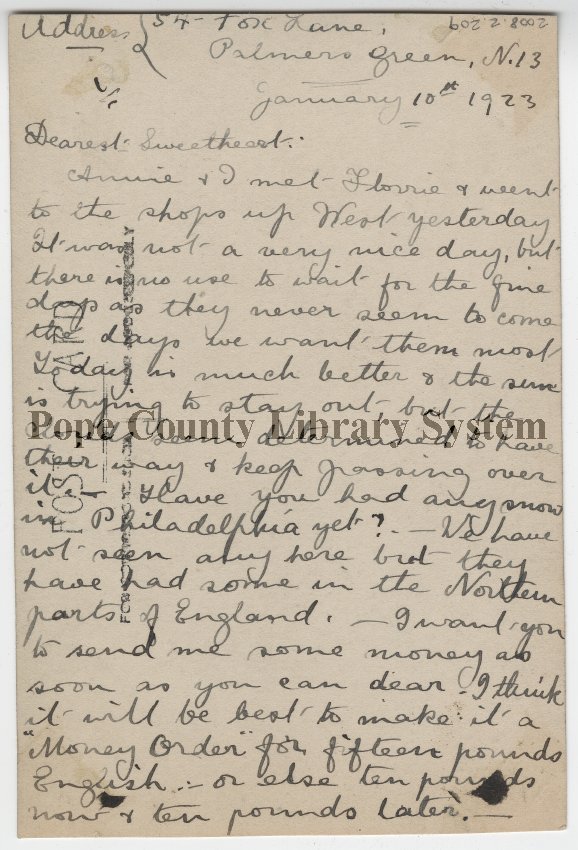 Address { 54 - Fox Lane,
2008.2.209
Palmers Green, N.13
January 10th 1923
Dearest Sweetheart:
Annie & I met Florrie & went
to the shops up West yesterday
It was not a very nice day, but
there is no use to wait for the fine
days as they never seem to come
the days we want them most
Today is much better & the sun
is trying to stay out, but the
clouds seem determined to have
their way & keep passing over
it. Have you had any snow
in Philadelphia yet? - We have
not seen any here but they
have had some in the Northern
parts of England. - I want you
to send me some money as
soon as you can dear - I think
it will be best to make it a
"Money Order" for fifteen pounds
English - or else ten pounds
now & ten pounds later. -
POST CARD
Pope County Library System